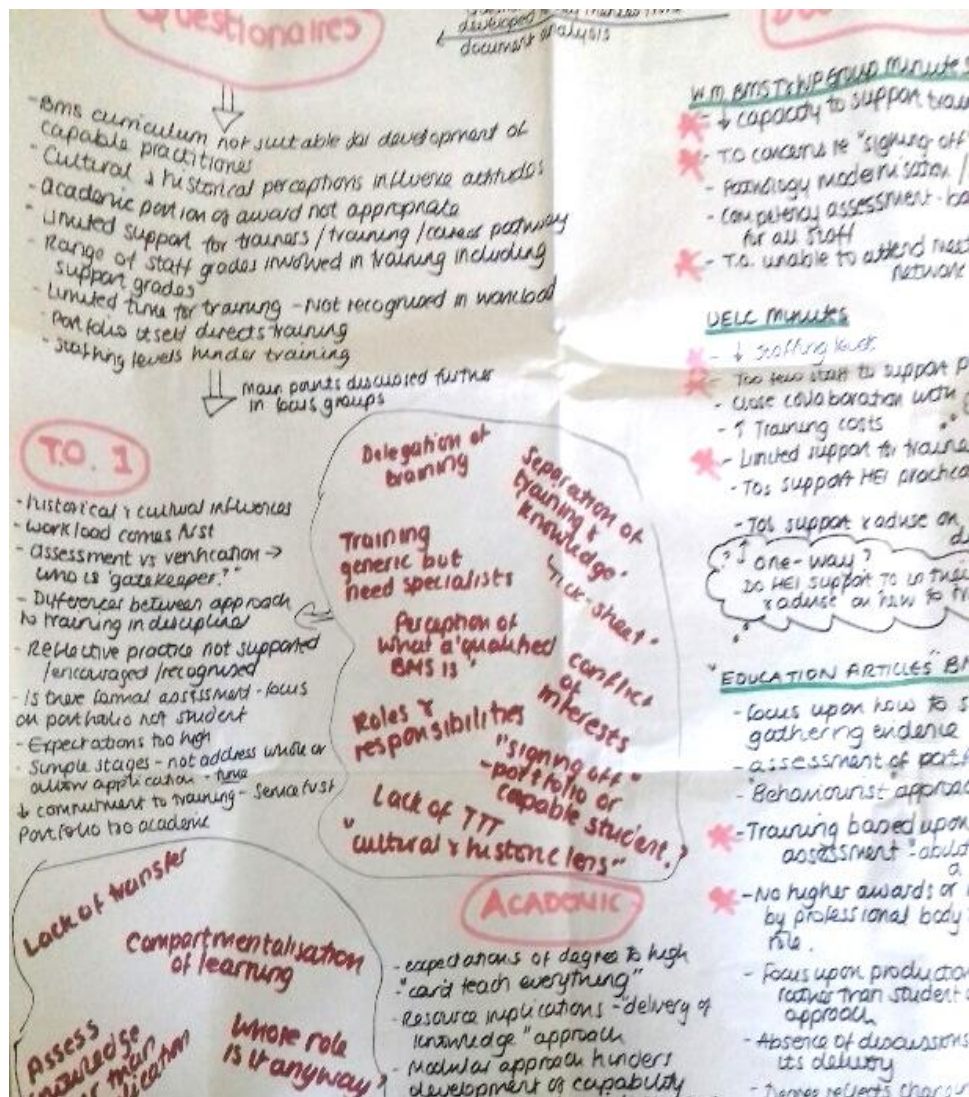 Questionaires
developed
document analysis
- BMS curriculum not suitable for development of
capable practitioner
- Cultural & historical perceptions influence attitudes
- academic portion of award not appropriate
- Limited support for trainers / training / career pathway
- Range of staff grades involved in training including
support grades
- Limited time for training - Not recognised in workload
- Portfolio itself directs training
- Staffing levels hinder training
main points discussed further
in focus groups
T.O. 1
- historical & cultural influences
- workload comes first
- assessment vs verification →
who is 'gatekeeper?'
- Differences between approach
to training in discipline
- Reflective practice not supported
/encouraged /recognised
- Is there formal assessment - focus
on portfolio not student
- Expectations too high
- Simple stages - not address whole or
allow application - time
↓ commitment to training - service first
Portfolio too academic
Delegation of
training
Separation of
training &
knowledge
Training
generic but
need specialists
"tick-sheet"
Perception of
what a 'qualified
BMS is'
conflict
of
interests
Roles &
responsibilities
"signing off"
- portfolio or
capable student?
Lack of TTT
"cultural & historic lens"
Lack of transfer
Compartmentalisation
of learning
Assess
knowledge
than
Whose role
is it anyway?
ACADEMIC
- expectations of degree to high
- "can't teach everything"
- Resource implications - "delivery of
knowledge" approach
- Modular approach hinders
development of capability
W.M. BMS T&WP Group Minutes
- ↓ capacity to support
- T.O concerns re "signing off
- Pathology modernisation /
- Competency assessment
for all staff
- T.O. unable to attend
network
UELC Minutes
- ↓ staffing levels
- Too few staff to support
- Close collaboration with
- ↑ Training costs
- Limited support for
- TOs support HEI
- TOs support & advise on
? ↓ one-way?
Do HEI support TO in their
& advise on how to
"EDUCATION ARTICLES"
- focus upon how to
gathering evidence
- assessment of
- "Behaviourist" approach
- Training based upon
assessment
a
- No higher awards or
by professional body
role.
- Focus upon production
rather than student
approach
- Absence of discussions
its delivery
- Degree reflects